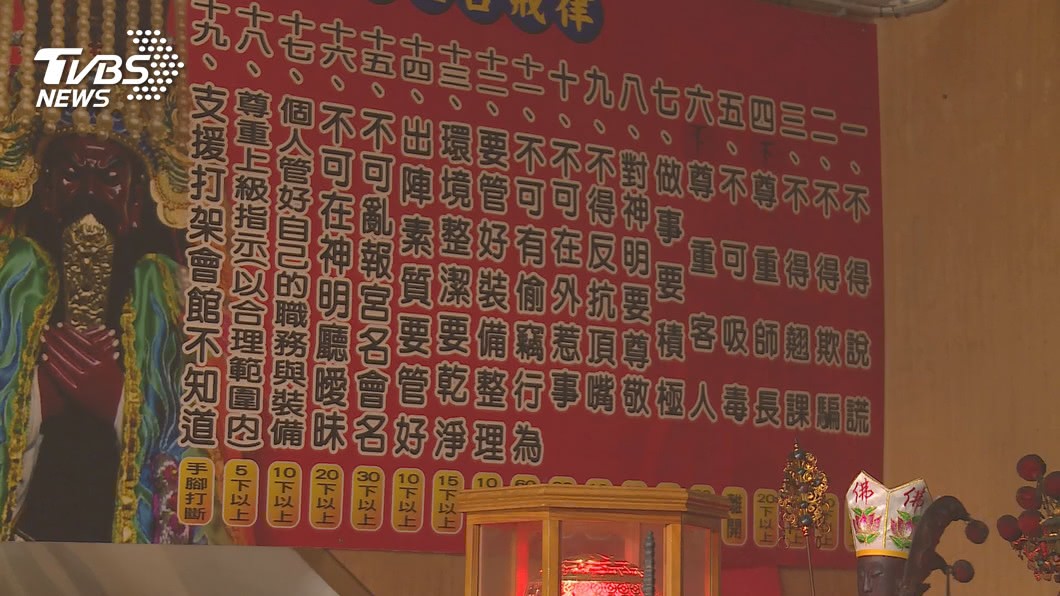 TVBS
NEWS
戒律
一、不得說謊
二、不得欺騙
三、不得翹課
四、尊重師長
五、不可吸毒
六、尊重客人
七、做事要積極
八、對神明要尊敬
九、不得反抗頂嘴
十、不可在外惹事
十一、不可有偷竊行為
十二、要管好裝備整理
十三、環境整潔要乾淨
十四、出陣素質要管好
十五、不可亂報宮名會名
十六、不可在神明廳曖昧
十七、個人管好自己的職務與裝備
十八、尊重上級指示(以合理範圍內)
十九、支援打架會館不知道
離開
10
15下以上
10下以上
30下以上
20下以上
10下以上
5下以上
手腳打斷
佛 佛